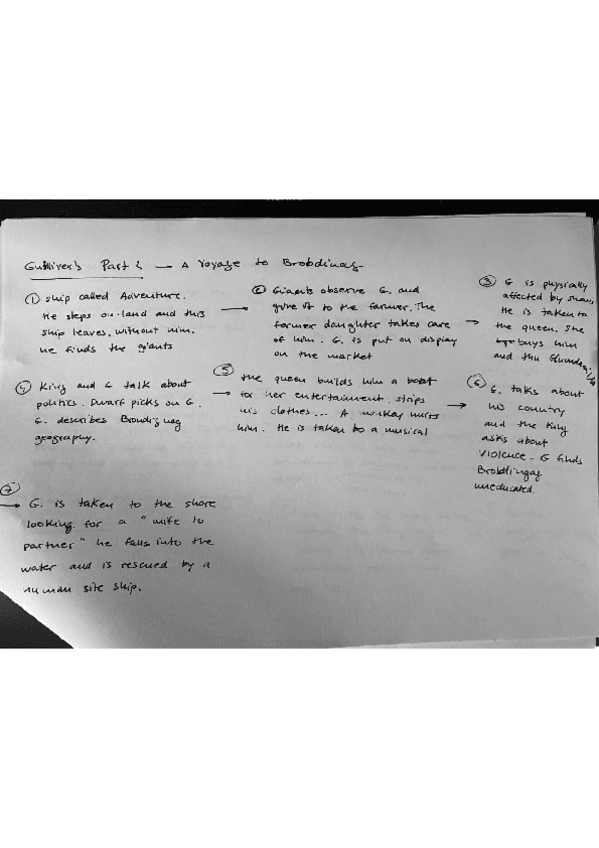 Gulliver's Part 2 — A voyage to Brobdinag
① Ship called Adventure.
He steps on land and this
ship leaves, without him.
He finds the giants
→
② Giants observe G. and
give it to the farmer. The
farmer daughter takes care
of him. G. is put on display
on the market
→
③ G is physically
affected by shows,
He is taken to
the queen. She
buys him
and the
④ King and G talk about
politics. Dwarf picks on G.
G. describes Broudigneg
geography.
→
⑤ The queen builds him a boat
for her entertainment, strips
his clothes... A monkey hurts
him. He is taken to a musical
→
⑥ G. talks about
his country
and the King
asks about
violence. G finds
Brobdingag
uneducated.
⑦
→ G. is taken to the shore
looking for a "wife to
partner" he falls into the
water and is rescued by a
human site ship.